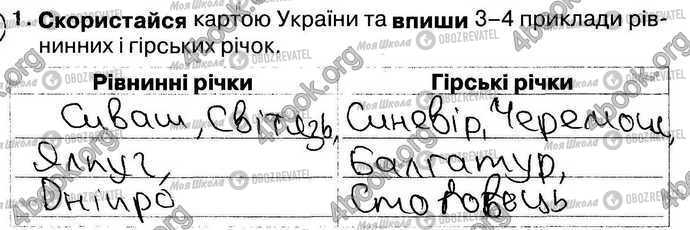 1. Скористайся картою України та впиши 3–4 приклади рів-
нинних і гірських річок.
Рівнинні річки Гірські річки
Сиваш, Світязь, Синевір, Черемош,
Ялпуг, Балгатур,
Дніпро Стоговець